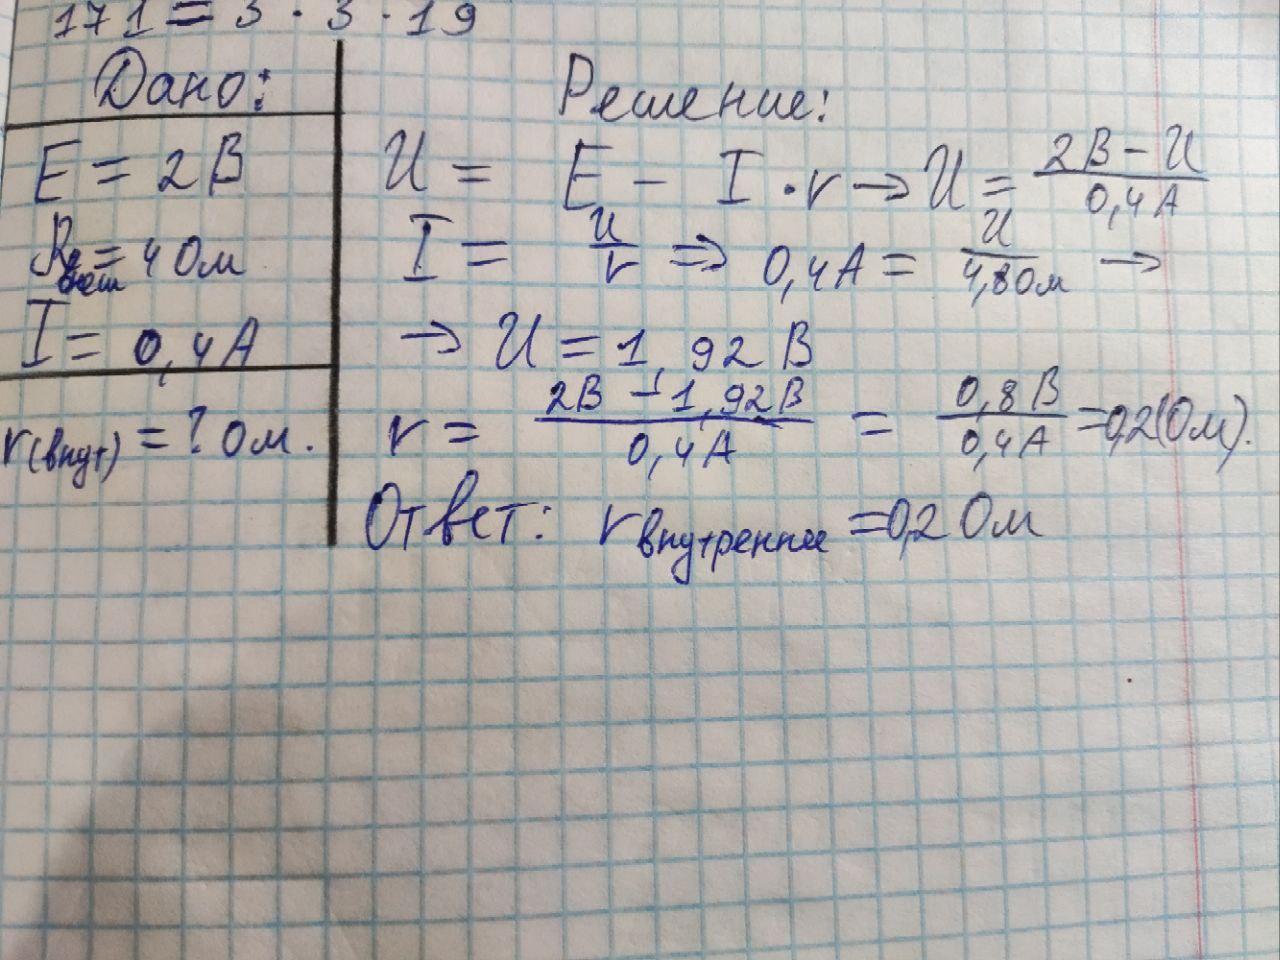 171 = 3 · 3 · 19
Дано:
E = 2В
Rвнеш = 4 Ом
I = 0,4А
r(внут) = ? Ом.
Решение:
U = E - I · r → U = 2В - U / 0,4А
I = U / r ⇒ 0,4А = U / 4,8Ом →
→ U = 1,92 В
r = 2В - 1,92В / 0,4А = 0,8В / 0,4А = 0,2(Ом).
Ответ: r внутреннее = 0,2 Ом